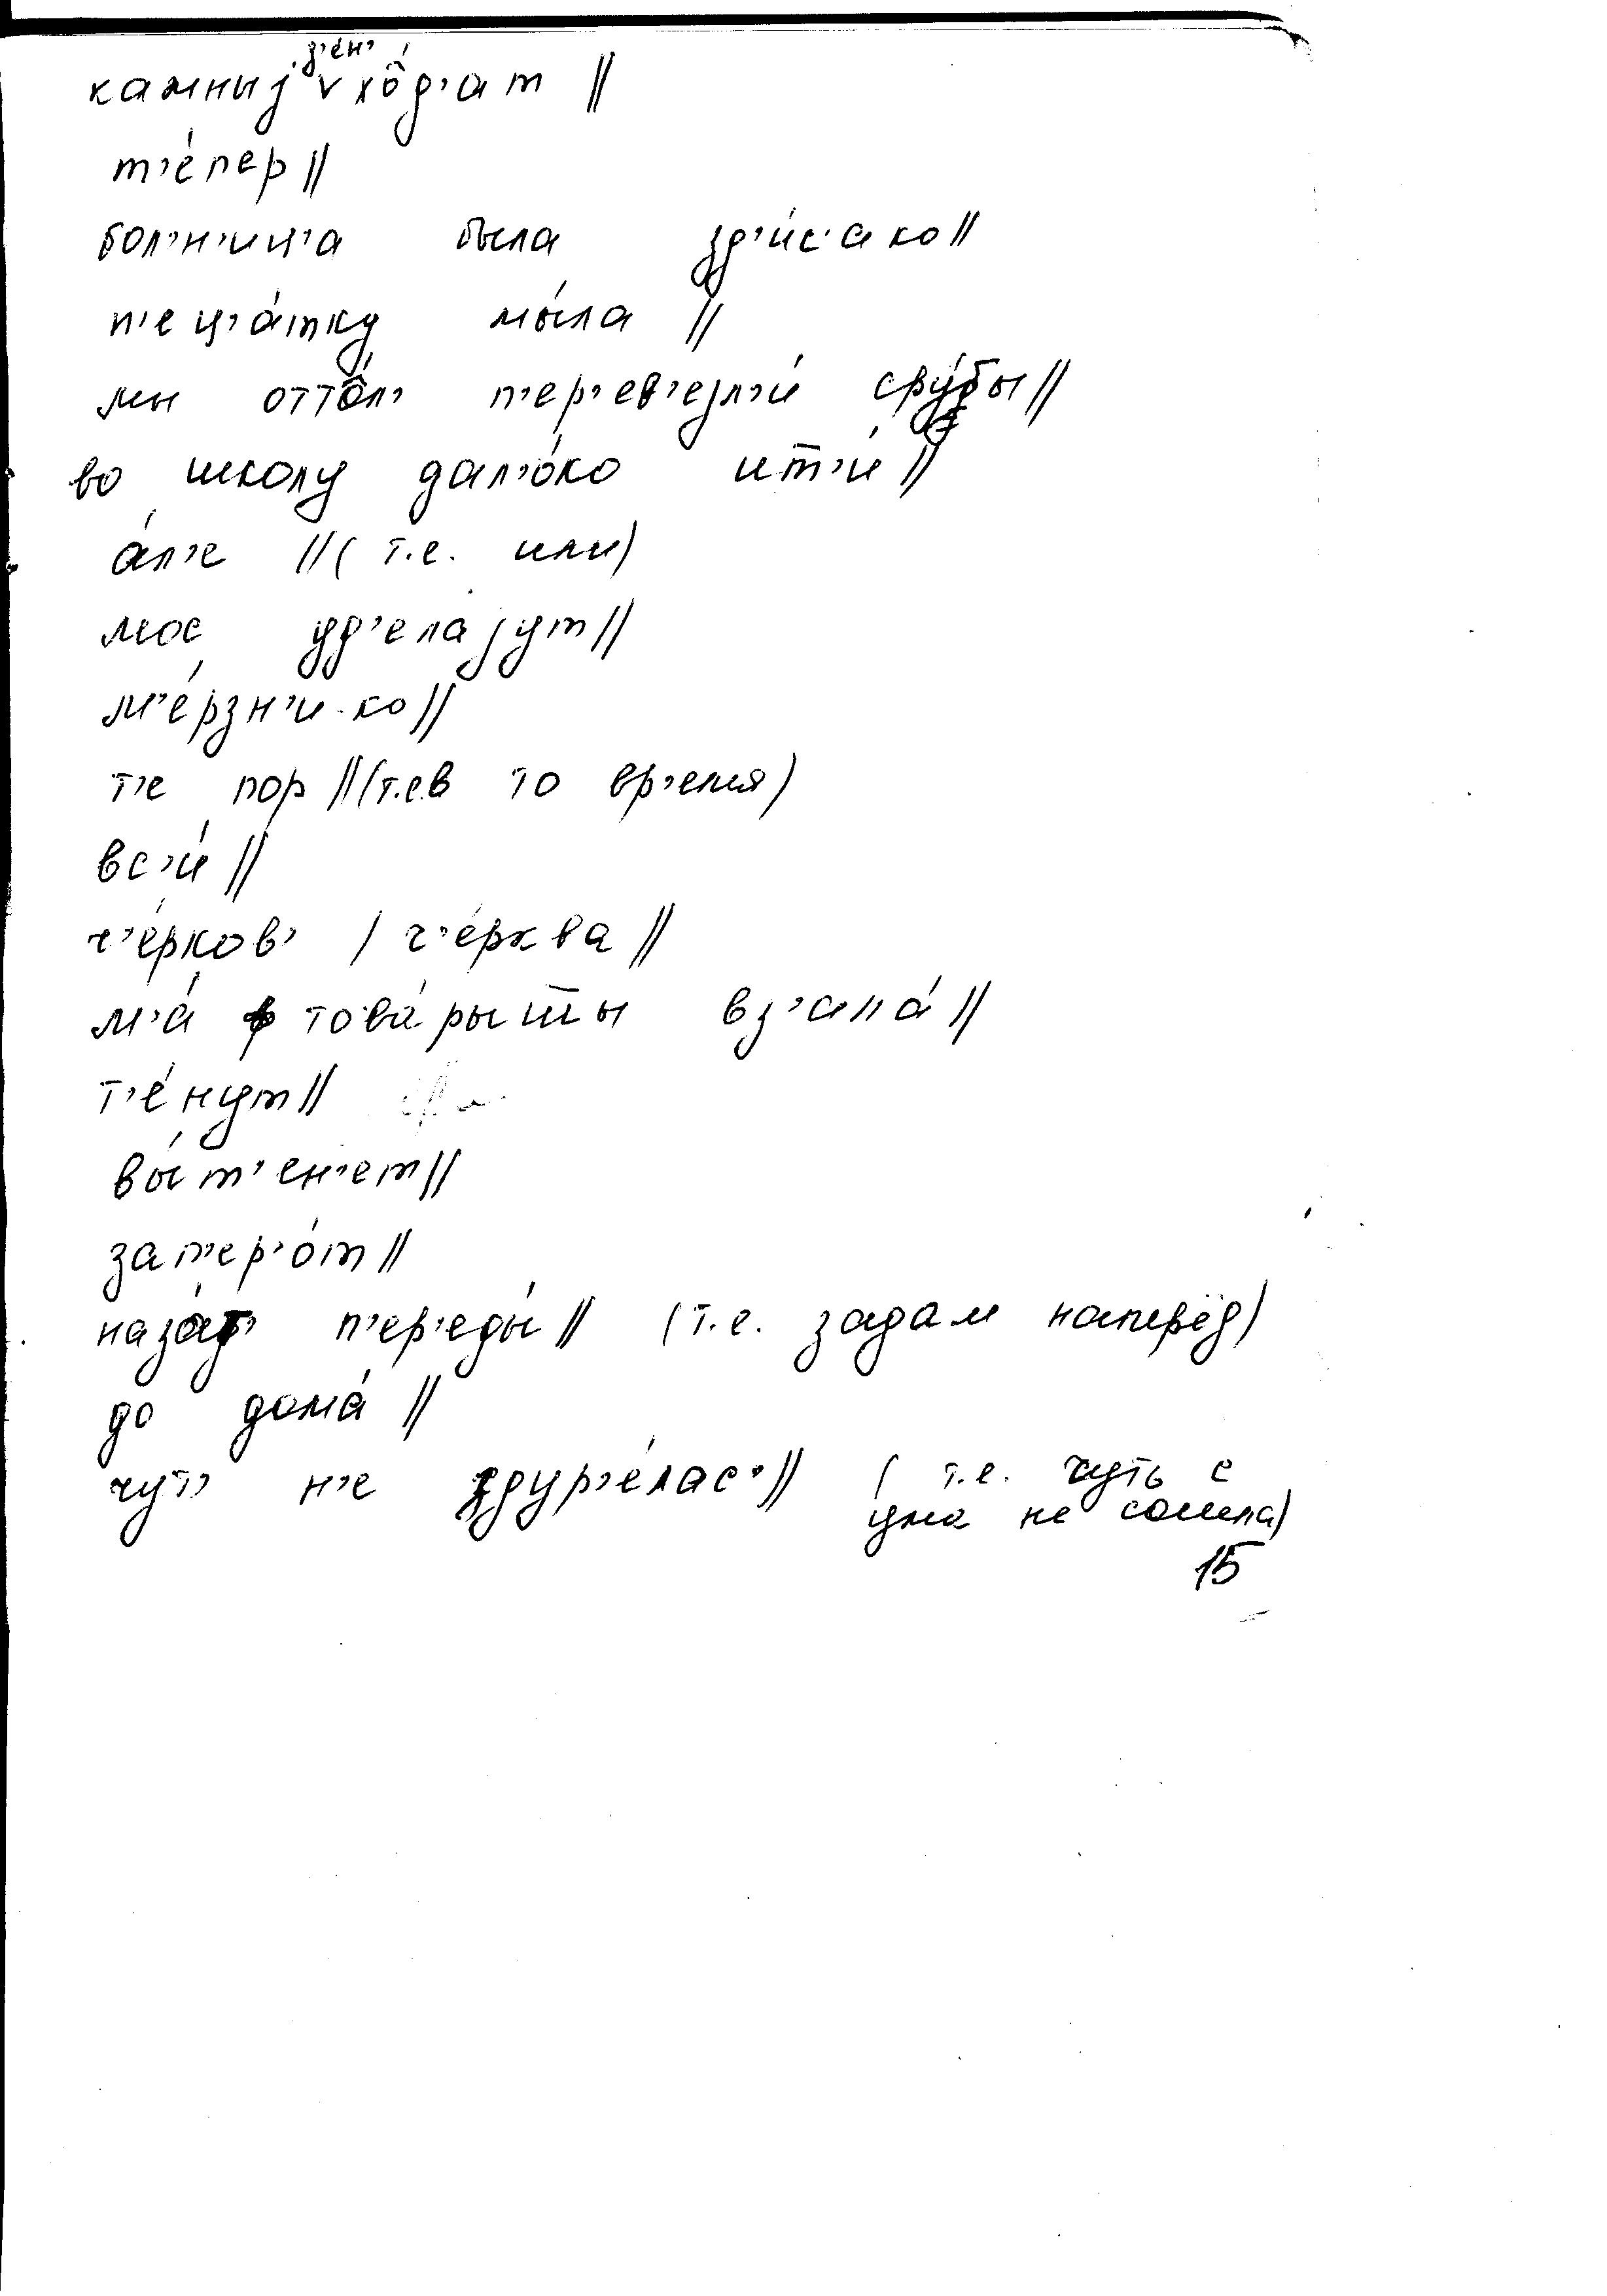 кажныј д'ен' хо̂́д'ат ||
т'е́пер ||
бол'н'иц'а была зд'и́с'ако ||
п'ец'а́тку мы́ла ||
мы оттốл' п'ер'ев'езл'и́ сру́бы ||
во школу дал'о́ко ит̄'и́ ||
а́л'е || (т.е. или)
мос уд'елајут ||
м'е́рзн'и·ко ||
т'е пор || (т.е. в то вр'емя)
вс'и́ ||
ч'е́рков' / ч'е́рква ||
м'а́ това́рыш̄ы вз'ала́ ||
т'е́нут ||
вы́т'ен'ет ||
зап'ер'о́т ||
наза́т' п'ер'еды́ || (т.е. задам наперёд)
до дома́ ||
чут' н'е здур'е́лас' || (т.е. чуть с
ума не сошла)
15